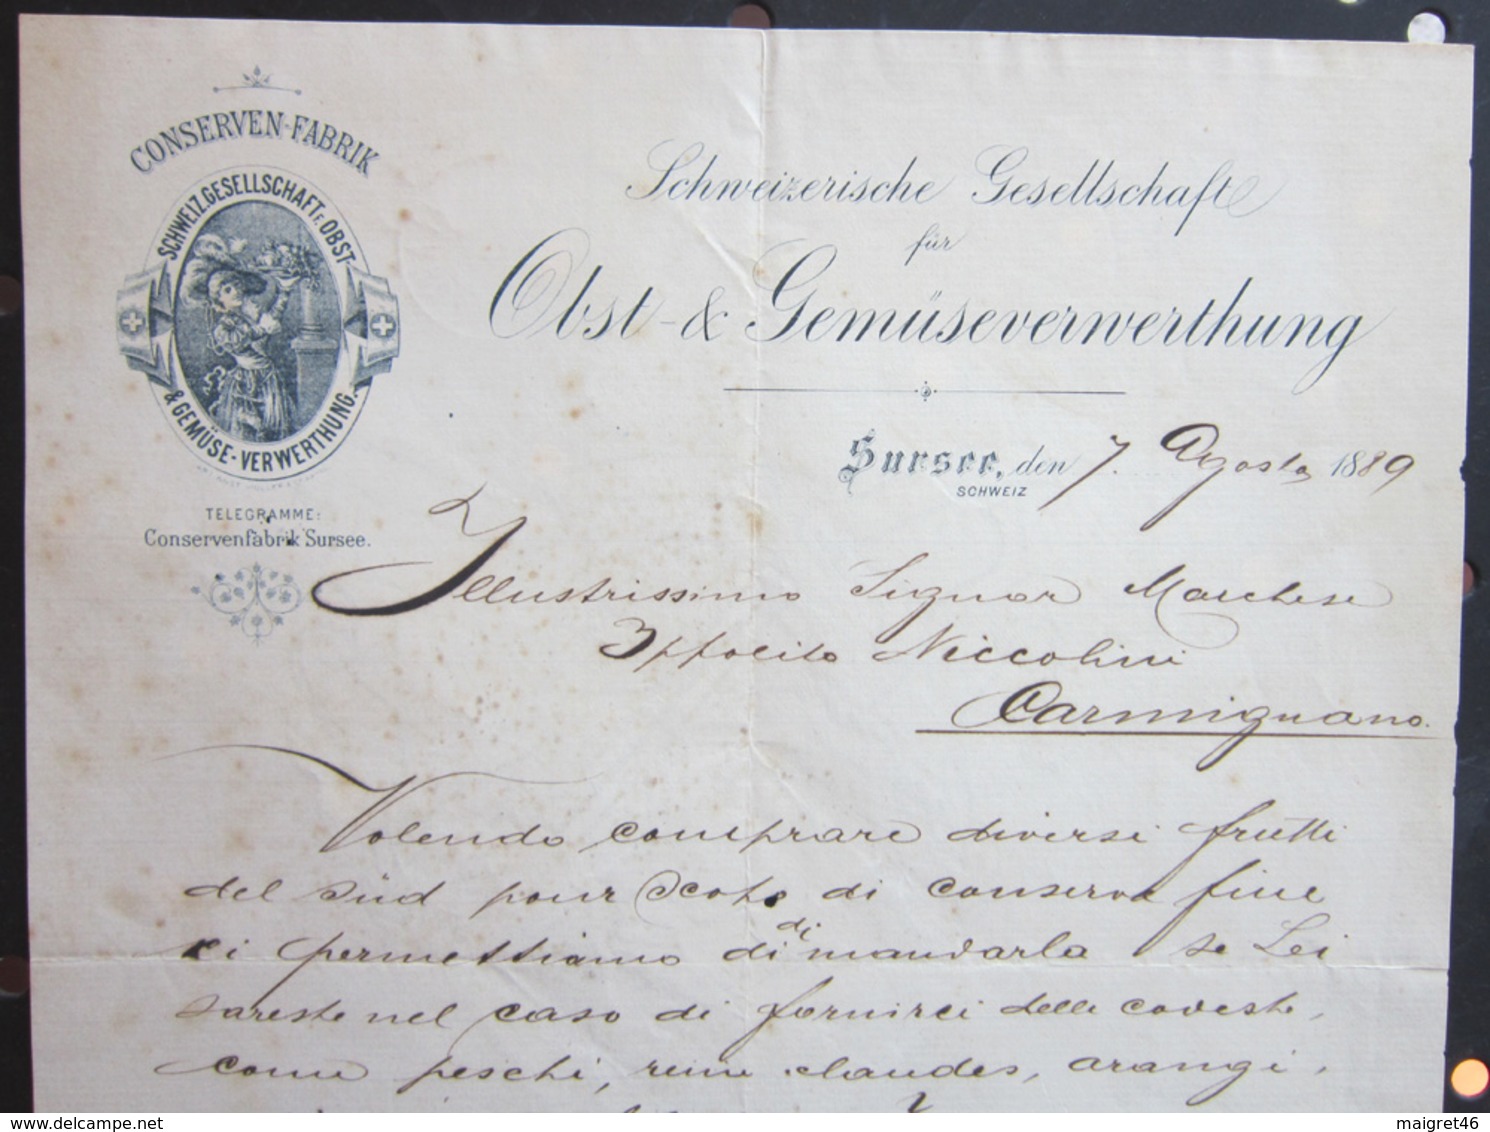 CONSERVEN-FABRIK
SCHWEIZ. GESELLSCHAFT F. OBST-
& GEMÜSE-VERWERTHUNG.
TELEGRAMME:
Conservenfabrik Sursee.
Schweizerische Gesellschaft
für
Obst- & Gemüseverwerthung
Sursee, den 7. Agosto 1889
SCHWEIZ
Illustrissimo Signor Marchese
Ippolito Niccolini
Carmignano.
Volendo comprare diversi frutti
del Süd pour scopo di conserve fine
ci permettiamo di
dimandarla se Lei
sareste nel caso di fornirci delle codeste,
come peschi, reine claudes, arangi,
maigret46